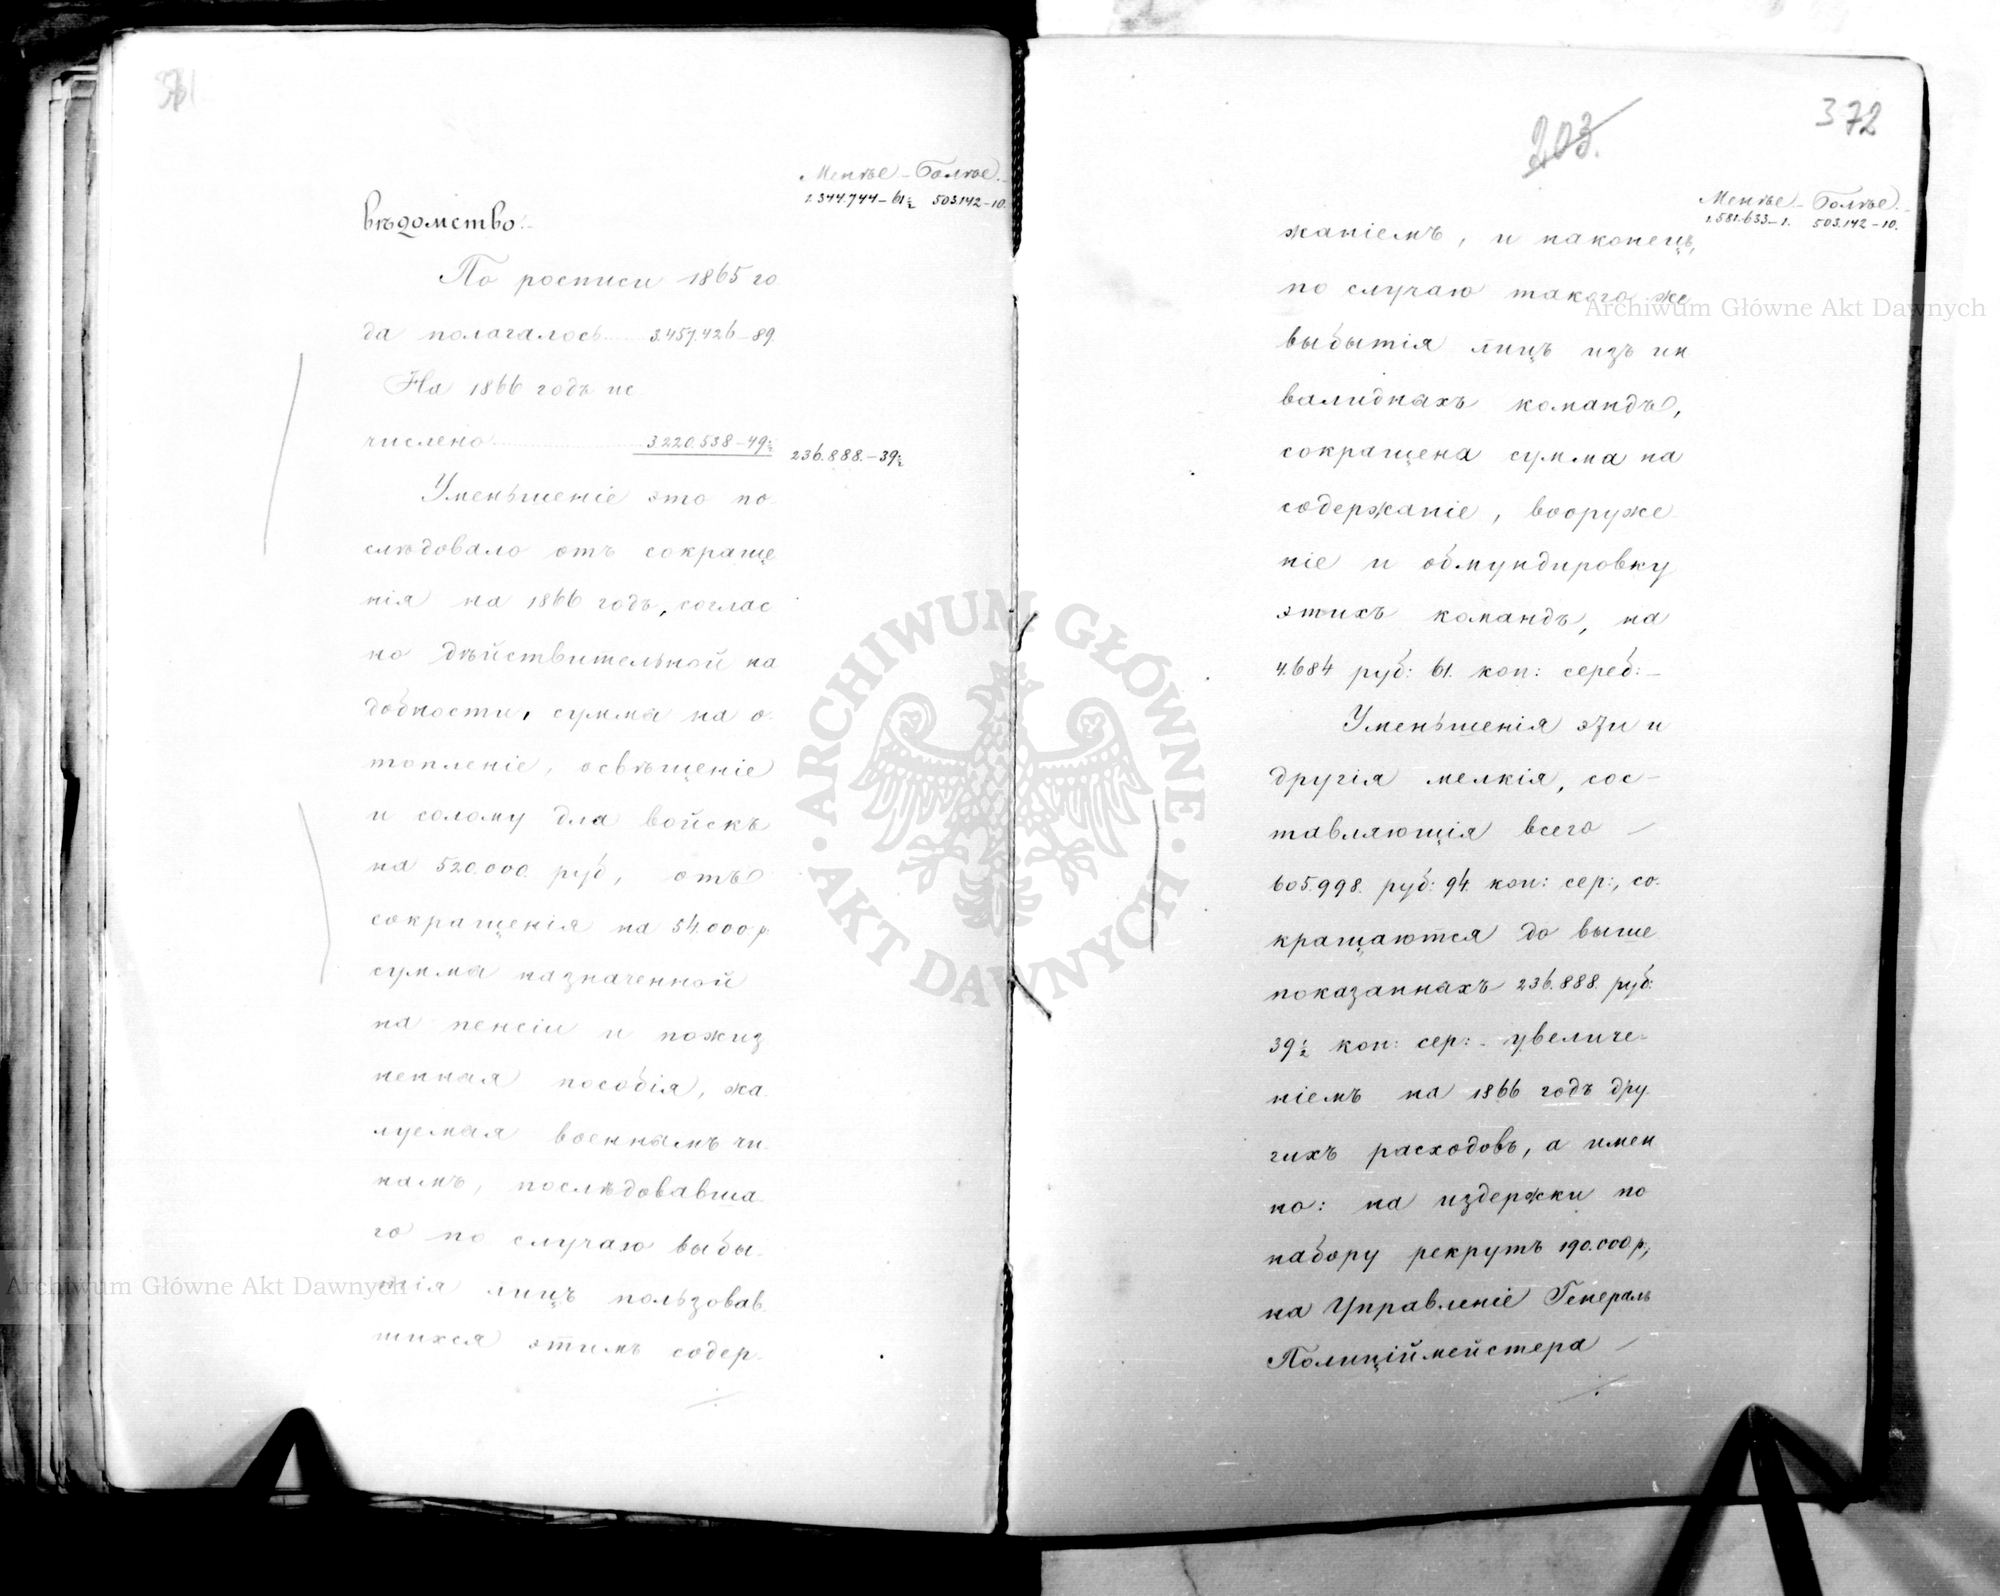 Менѣе – Болѣе.
1.344.744–61½ 503.142–10.
вѣдомство:
По росписи 1865 го
да полагалось 3.457.426–89.
На 1866 годъ ис
числено 3.220.538–49½ 236.888.–39½
Уменьшеніе это по
слѣдовало отъ сокраще
нія на 1866 годъ, соглас
но дѣйствительной на
добности, суммы на о
топленіе, освѣщеніе
и солому для войскъ
на 520.000 руб, отъ
сокращенія на 54.000 р.
суммы назначенной
на пенсіи и пожиз
ненныя пособія, жа
луемыя военнымъ чи
намъ, послѣдовавша
го по случаю выбы
тія лицъ пользовав
шихся этимъ содер
372
203.
Менѣе – Болѣе.
1.581.633–1. 503.142–10.
жаніемъ, и наконецъ,
по случаю такого же
выбытія лицъ изъ ин
валидныхъ командъ,
сокращена сумма на
содержаніе, вооруже
ніе и обмундировку
этихъ командъ, на
4.684 руб: 61. коп: сереб: –
Уменьшенія эти и
другія мелкія, сос–
тавляющія всего
605.998. руб: 94. коп: сер:, со
кращаются до выше
показанныхъ 236.888. руб:
39½ коп: сер: – увеличе–
ніемъ на 1866 годъ дру
гихъ расходовъ, а имен
но: на издержки по
набору рекрутъ 190.000 р.,
на Управленіе Генералъ
Полиціймейстера
Archiwum Główne Akt Dawnych
Archiwum Główne Akt Dawnych
ARCHIWUM GŁÓWNE
AKT DAWNYCH